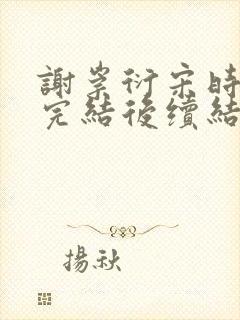 謝崇衍宋時
完結後續結
揚秋